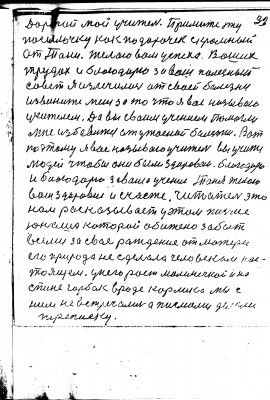 39
Дорогой мой учитель. Примите эту
посылочку как подарочек скромный
от Тани. Желаю вам успеха. В ваших
трудах и благодарю за ваш полезный
совет я излечился от своей болезни
извините меня за то что я вас называю
учителем. Да вы своим учением помогли
мне избавиться от ужасной болезни. Вот
поэтому я вас называю учителем вы учите
людей чтобы они были здоровы. благодарю
и благодарю за ваше учение Таня желаю
вам здоровие и счасте, читатель это
нам рассказывает у этом письме
юноша которой обижено забыт
всеми за свое раждение от матери
его природа не сделала человеком нас-
тоящем. у него рост маленький и на
спине горбок вроде кормика мы с
ним не встречались а письмами держали
переписку.